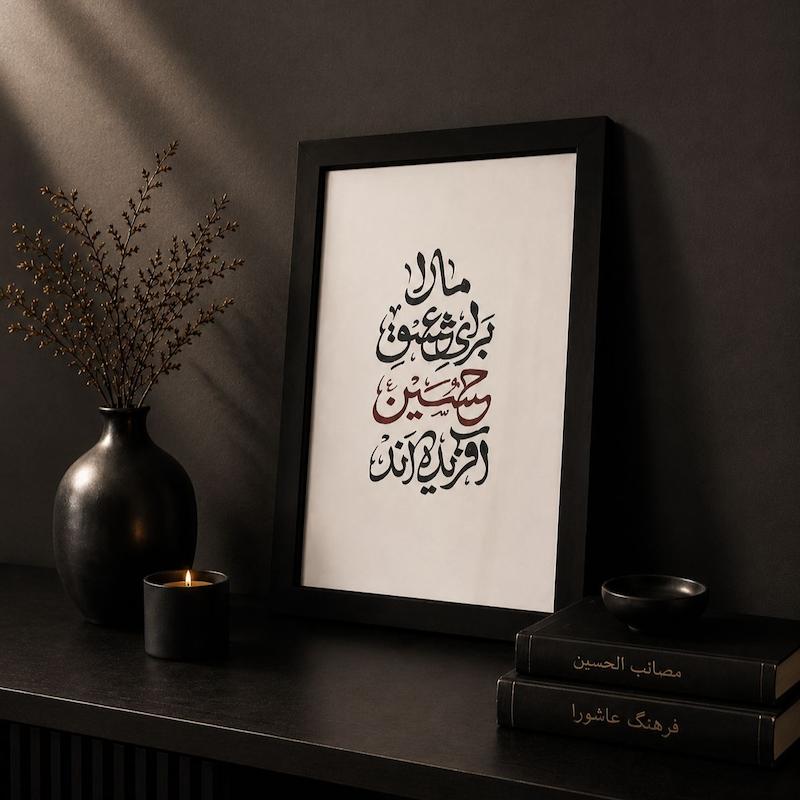 مارا
برای عشق
حسین
آفریده اند
مصائب الحسین
فرهنگ عاشورا